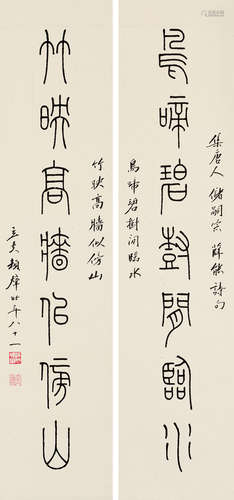 鳥啼碧樹閒臨水
集唐人儲嗣宗薛能詩句
鳥啼碧樹閒臨水
竹映高牆似傍山
竹映高牆似傍山
立夫賴
年八十一